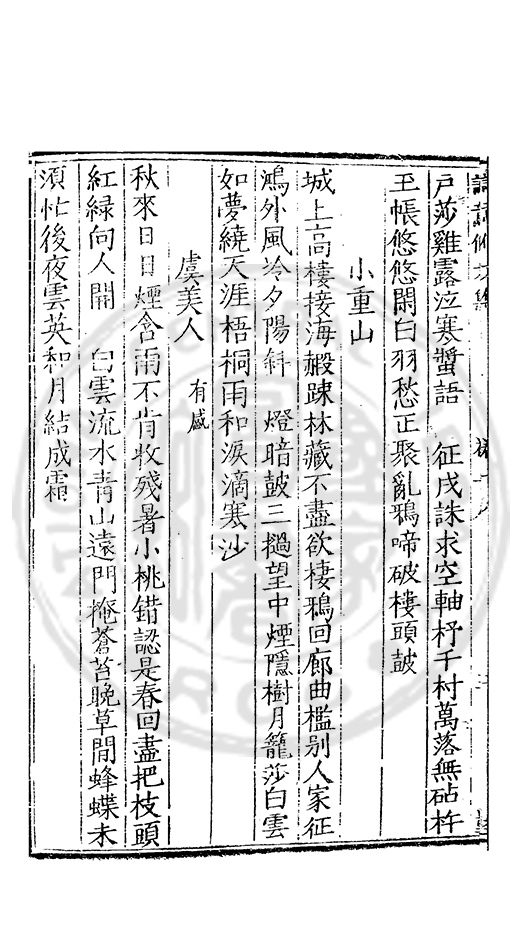 戸莎雞露泣寒螿語　征戌誅求空軸杼千村萬落無砧杵
玉帳悠悠閑白羽愁正聚亂鴉啼破樓頭鼓
小重山
城上高樓接海𣝔踈林藏不盡欲棲鴉回廊曲檻别人家征
鴻外風冷夕陽斜　燈暗鼓三撾望中煙隱樹月籠莎白雲
如夢繞天涯梧桐雨和淚滴寒沙
虞美人　有感
秋來日日煙含雨不肯收殘暑小桃錯認是春回盡把枝頭
紅緑向人開　白雲流水青山遠門掩蒼苔晚草間蜂蝶未
須忙後夜雲英和月結成霜